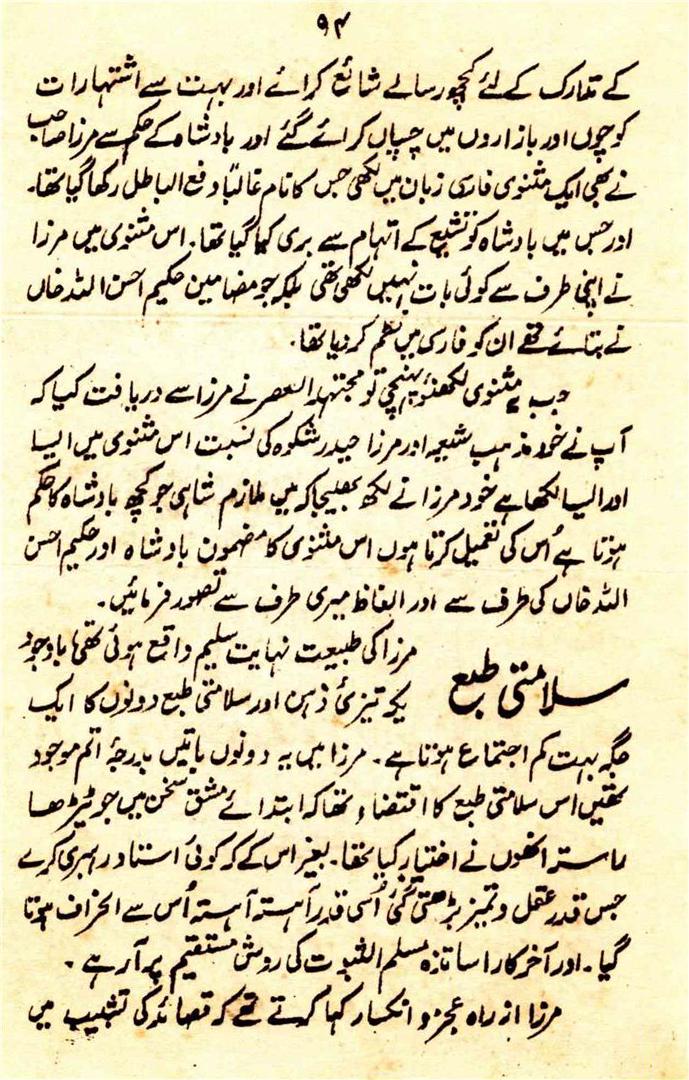 ۹۴
کے تدارک کے لئے کچھ رسالے شائع کرائے اور بہت سے اشتہارات
کوچوں اور بازاروں میں چسپاں کرائے گئے اور بادشاہ کے حکم سے مرزا صاحب
نے بھی ایک مثنوی فارسی زبان میں لکھی جس کا نام غالباً دفع الباطل رکھا گیا تھا۔
اور جس میں بادشاہ کو تشیع کے اتہام سے بری کہا گیا تھا۔ اس مثنوی میں مرزا
نے اپنی طرف سے کوئی بات نہیں لکھی تھی بلکہ جو مضامین حکیم احسن اللہ خاں
نے بتائے تھے ان کو فارسی میں نظم کر دیا تھا۔
جب یہ مثنوی لکھنؤ پہنچی تو مجتہد العصر نے مرزا سے دریافت کیا کہ
آپ نے خود مذہب شیعہ اور مرزا حیدر شکوہ کی نسبت اس مثنوی میں ایسا
اور ایسا لکھا ہے خود مرزا نے لکھ بھیجا کہ میں ملازم شاہی جو کچھ بادشاہ کا حکم
ہوتا ہے اُس کی تعمیل کرتا ہوں اس مثنوی کا مضمون بادشاہ اور حکیم احسن
اللہ خاں کی طرف سے اور الفاظ میری طرف سے تصور فرمائیں۔
مرزا کی طبیعت نہایت سلیم واقع ہوئی تھی باوجود
سلامتی طبع
یکہ تیزیٔ ذہن اور سلامتی طبع دونوں کا ایک
جگہ بہت کم اجتماع ہوتا ہے۔ مرزا میں یہ دونوں باتیں بدرجۂ اتم موجود
تھیں اس سلامتی طبع کا اقتضاء تھا کہ ابتدائے مشق سخن میں جو ٹیڑھا
راستہ انھوں نے اختیار کیا تھا۔ بغیر اس کے کہ کوئی استاد رہبری کرے
جس قدر عقل و تمیز بڑھتی گئی اُسی قدر آہستہ آہستہ اُس سے انحراف ہوتا
گیا۔ اور آخر کار اساتذہ مسلم الثبوت کی روش مستقیم پر آ رہے۔
مرزا از راہ عجز و انکسار کہا کرتے تھے کہ قصائد کی تشبیب میں